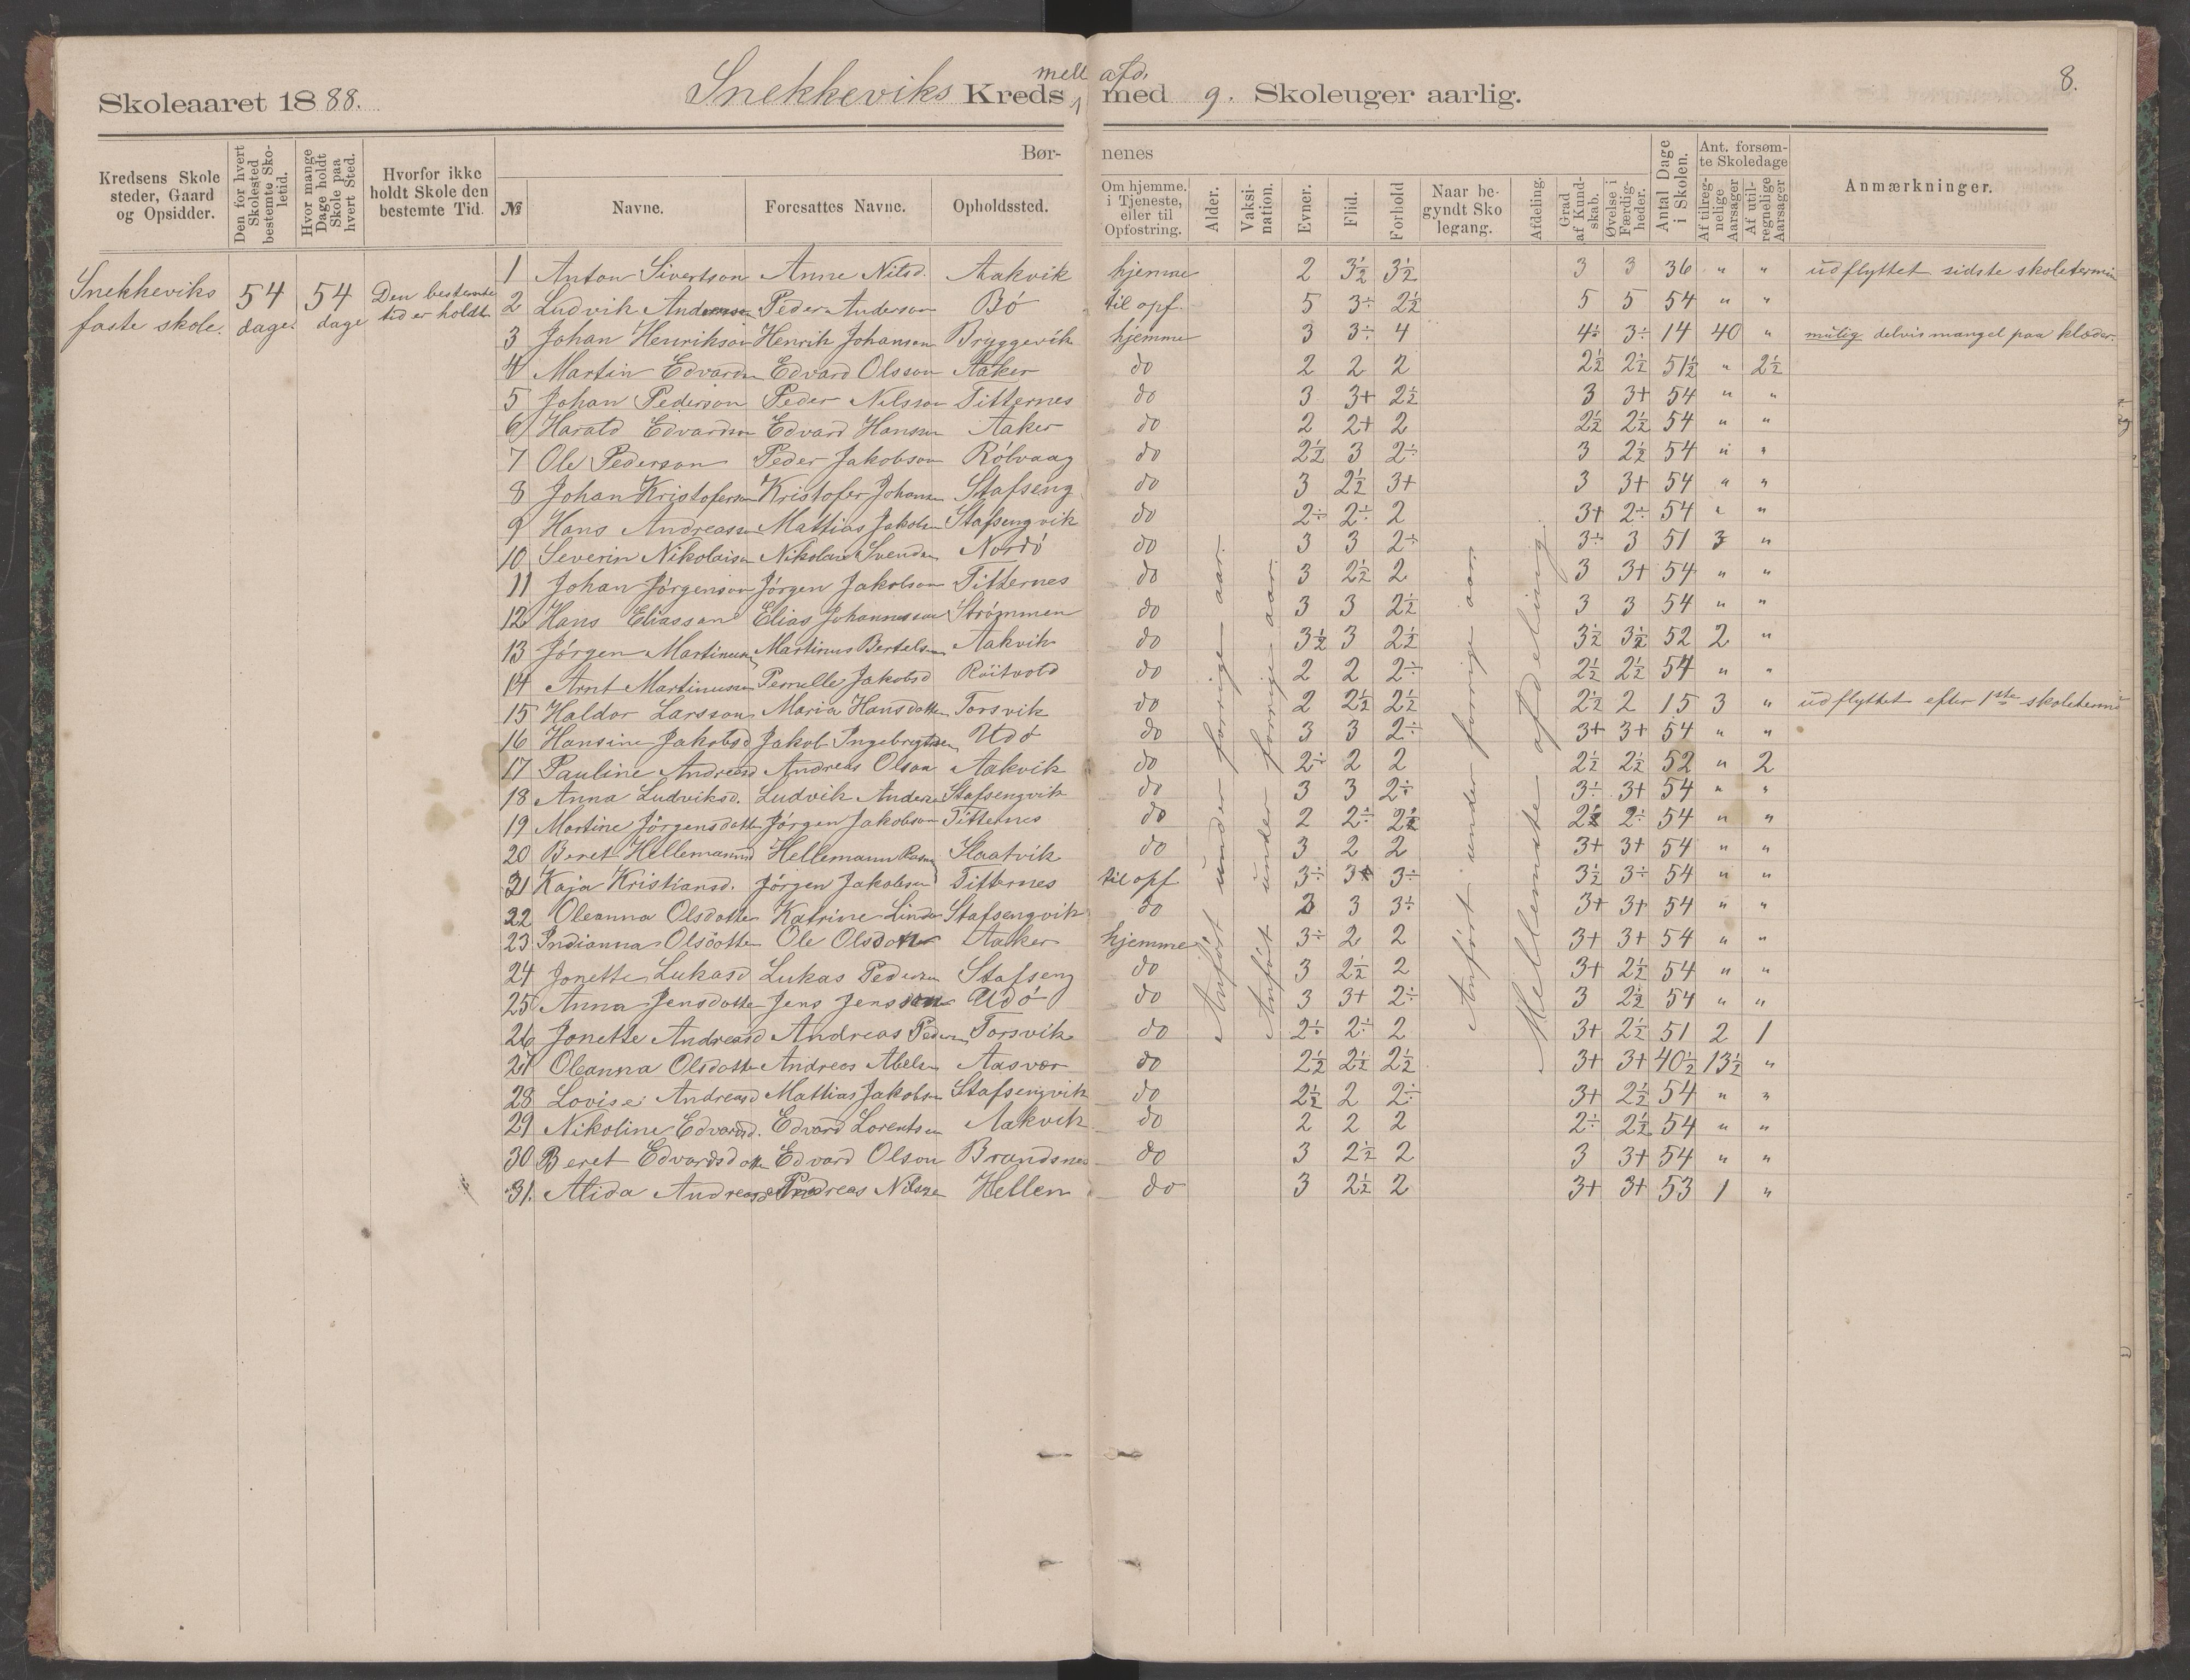 mell afd.
8.
Skoleaaret 1888. Snekkeviks Kreds, med 9. Skoleuger aarlig.
Kredsens Skole steder, Gaard og Opsidder.
Den for hvert Skolested bestemte Skoletid.
Hvor mange Dage holdt Skole paa hvert Sted.
Hvorfor ikke holdt Skole den bestemte Tid.
Børnenes
№
Navne.
Foresattes Navne.
Opholdssted.
Om hjemme. i Tjeneste, eller til Opfostring.
Alder.
Vaksination.
Evner.
Flid.
Forhold
Naar begyndt Skolegang.
Afdeling.
Grad af Kundskab.
Øvelse i Færdigheder.
Antal Dage i Skolen.
Ant. forsømte Skoledage
Af tilregnelige Aarsager
Af utilregnelige Aarsager
Anmærkninger.
Snekkeviks faste skole.
54 dage.
54 dage
Den bestemte tid er holdt.
1 Anton Sivertson Anne Nilsd. Aakvik hjemme 2 3½ 3½ 3 3 36 " " udflyttet sidste skoletermin
2 Ludvik Anderson Peder Anderson Bó til opf. 5 3÷ 2½ 5 5 54 " "
3 Johan Henrikson Henrik Johansen Bryggevik hjemme 3 3÷ 4 4÷ 3÷ 14 40 " mülig delvis mangel paa klæder.
4 Martin Edvards Edvard Olsson Aaker do 2 2 2 2½ 2½ 51½ " 2½
5 Johan Pederson Peder Nilsson Titternes do 3 3+ 2½ 3 3+ 54 " "
6 Harald Edvardson Edvard Hansen Aaker do 2 2+ 2 2½ 2½ 54 " "
7 Ole Pederson Peder Jakobson Rólvaag do 2½ 3 2÷ 3 2½ 54 " "
8 Johan Kristoferson Kristofer Johansen Stafseng do 3 2½ 3+ 3 3+ 54 " "
9 Hans Andreassen Mathias Jakobsen Stafsengvik do 2÷ 2÷ 2 3+ 2÷ 54 " "
10 Severin Nikolaisen Nikolai Svendsen Nordó do 3 3 2÷ 3÷ 3 51 3 "
11 Johan Jörgenson Jörgen Jakobson Titternes do 3 2½ 2 3 3+ 54 " "
12 Hans Eliassen Elias Johannesson Strömmen do 3 3 2½ 3 3 54 " "
13 Jörgen Martinusen Martinus Bertelsen Aakvik do 3½ 3 2½ 3½ 3½ 52 2 "
14 Arnt Martinussen Pernelle Jakobsd do 2 2 2÷ 2½ 2½ 54 " "
15 Haldor Larsson Maria Hansdatter Torsvik do 2 2½ 2½ 2½ 2 15 3 " udflyttet efter 1ste skoletermin
16 Hansine Jakobsd Jakob Ingebrigtsen Udó do 3 3 2÷ 3+ 3+ 54 " "
17 Pauline Andreasd Andreas Olson Aakvik do 2÷ 2 2 2½ 2½ 52 " 2
18 Anna Ludviksd. Ludvik Anderson Stafsengvik do 3 3 2÷ 3÷ 3+ 54 " "
19 Martine Jörgensdatter Jörgen Jakobson Titternes do 2 2÷ 2½ 2½ 2÷ 54 " "
20 Beret Hellemannsd Hellemann Rasm Slaatvik do 3 2 2 3+ 3+ 54 " "
21 Kaja Kristiansd. Jörgen Jakobsen Titternes til opf 3÷ 3+ 3÷ 3½ 3÷ 54 " "
22 Oleanna Olsdatter Katrine Linds Stafsengvik do 3 3 3÷ 3+ 3+ 54 " "
23 Indianna Olsdotter Ole Olsdotter Aaker hjemme 3÷ 2 2 3+ 3+ 54 " "
24 Jonette Lukasd Lukas Pedersen Stafseng do 3 2½ 2 3+ 2½ 54 " "
25 Anna Jensdatter Jens Jensson Udó do 3 3+ 2÷ 3 2½ 54 " "
26 Jonette Andreasd Andreas Pedersen Torsvik do 2÷ 2÷ 2 3+ 2½ 51 2 1
27 Oleanna Olsdatter Andreas Abelsen Aasvær do 2½ 2½ 2½ 3+ 3+ 40½ 13½ "
28 Lovise Andreasd Mathias Jakobsen Stafsengvik do 2½ 2 2÷ 3+ 2½ 54 " "
29 Nikoline Edvardsd. Edvard Lorentsen Aakvik do 2 2 2 2÷ 2½ 54 " "
30 Beret Edvardsdotter Edvard Olson Brandsnes do 3 2½ 2 3 3+ 54 " "
31. Alida Andreasd Andreas Nilsen Hellen do 3 2½ 2 3+ 3+ 53 1 "
Anført under forrige aar.
Anført under forrige aar.
Anført under forrige aar.
Mellemste afdeling.